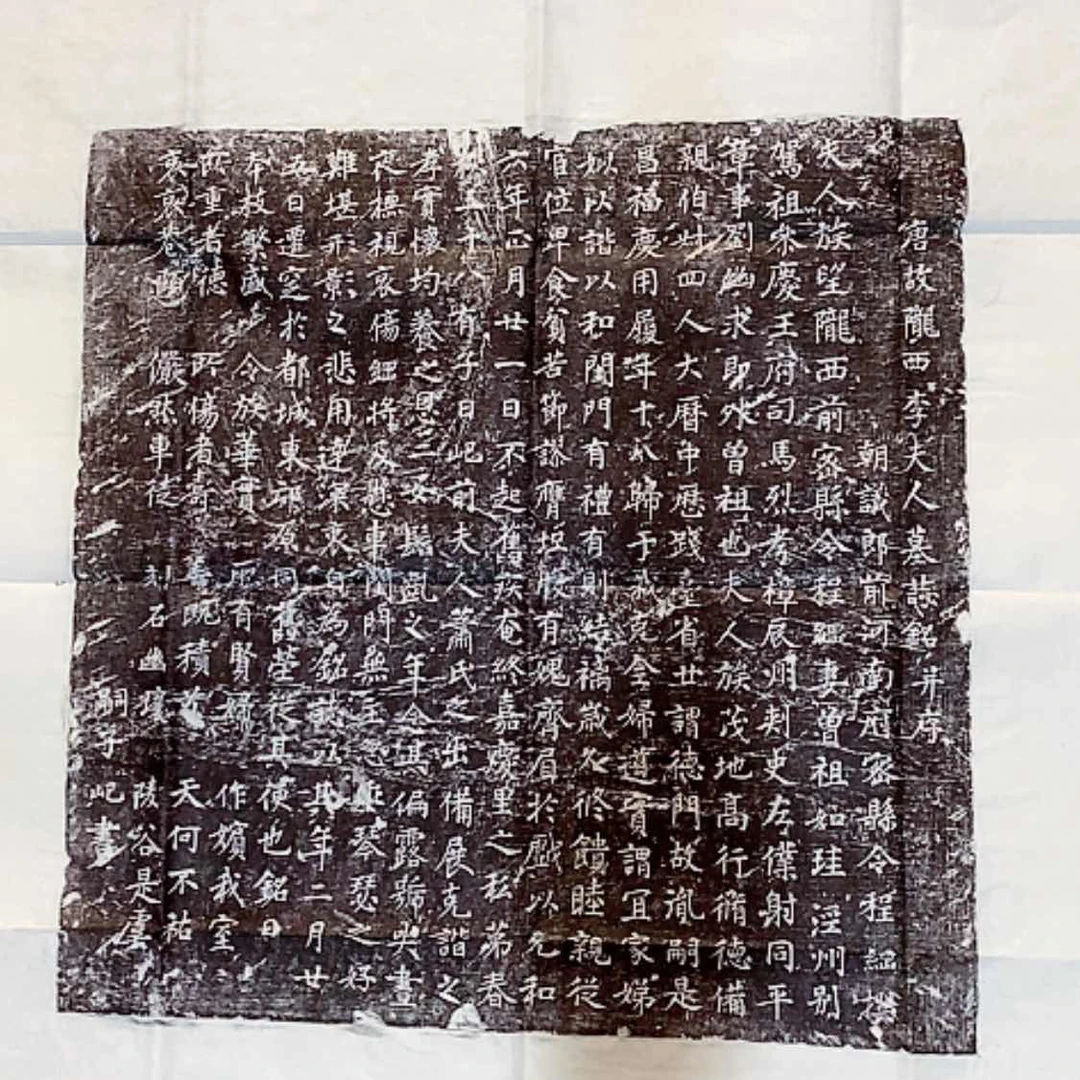 唐故隴西李夫人墓誌銘并序
朝議郎前河南府密縣令程絪撰
夫人族望隴西前密縣令程絪妻曾祖如珪涇州別
駕祖眾慶王府司馬烈考樟辰州刺史左僕射同平
章事劉幽求即外曾祖也夫人族茂地高行脩德備
親伯叔四人大曆中歷踐臺省世謂德門故胤嗣是
昌福慶用履年十八歸于我克全婦道實謂宜家娣
姒以諧以和閨門有禮有則結褵歲久修饋睦親從
官位卑食貧苦節謬膺拯有愧齊眉於戲以元和
六年正月廿一日不起舊疾奄終嘉慶里之私第春
秋三十八有子曰屺前夫人蕭氏之出備展克諧之
孝實懷均養之恩二女髫齔之年念其偏露號哭晝
夜撫視哀傷絪將及悲車閨門無主琴瑟之好
難堪形影之悲用達深哀自為銘誌以其年二月廿
五日遷窆於都城東邙原同舊塋從其便也銘曰
本枝繁盛 令族華實 爰有賢婦 作嬪我室
所重者德 所傷者壽 積善 天何不祐
哀哀春 儼然車徒 刻石幽壤 陵谷是虞
嗣子屺書